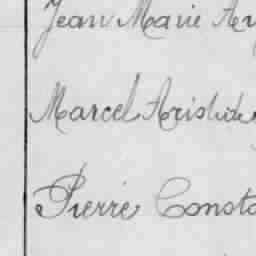 Jean Marie
Marcel Aristide
Pierre Consta